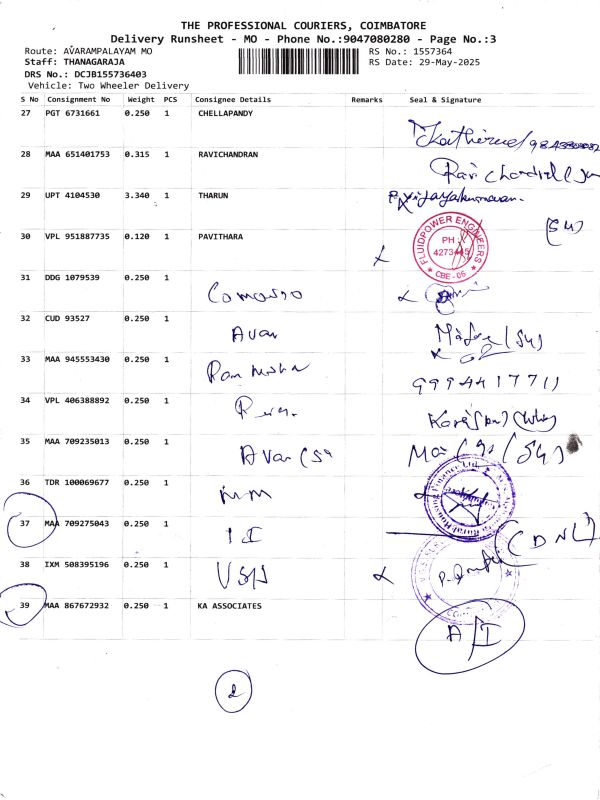 THE PROFESSIONAL COURIERS, COIMBATORE
Delivery Runsheet - MO - Phone No.:9047080280 - Page No.:3
Route: AVARAMPALAYAM MO RS No.: 1557364
Staff: THANAGARAJA RS Date: 29-May-2025
DRS No.: DCJB155736403
Vehicle: Two Wheeler Delivery
S No Consignment No Weight PCS Consignee Details Remarks Seal & Signature
27 PGT 6731661 0.250 1 CHELLAPANDY
28 MAA 651401753 0.315 1 RAVICHANDRAN
29 UPT 4104530 3.340 1 THARUN
30 VPL 951887735 0.120 1 PAVITHARA
FLUIDPOWER ENGINEERS
PH
CBE - 06
31 DDG 1079539 0.250 1
32 CUD 93527 0.250 1 Avan
33 MAA 945553430 0.250 1 9994417711
34 VPL 406388892 0.250 1
35 MAA 709235013 0.250 1 Avan
36 TDR 100069677 0.250 1 MM
37 MAA 709275043 0.250 1 (DNL)
38 IXM 508395196 0.250 1
39 MAA 867672932 0.250 1 KA ASSOCIATES
2